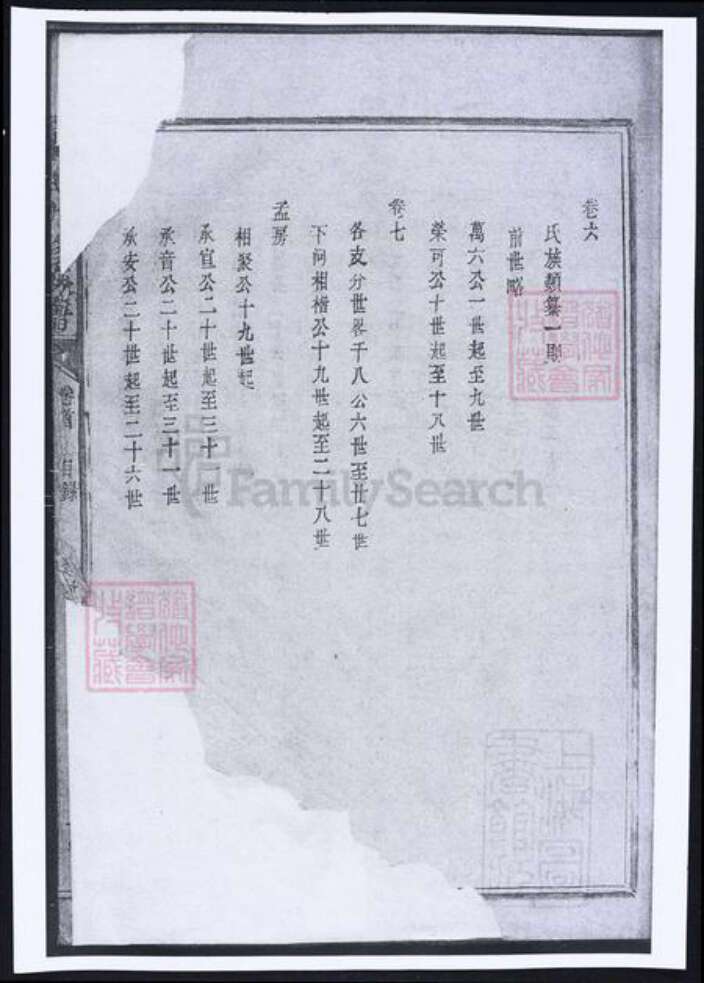 卷六
氏族類纂一則
前世略
萬六公一世起至九世
榮可公十世起至十八世
卷七
各支分世畧千八公六世至廿七世
下問相楷公十九世起至二十八世
孟房
相聚公十九世起
承宣公二十世起至三十一世
承音公二十世起至三十一世
承安公二十世起至二十六世
卷首 目錄
FamilySearch